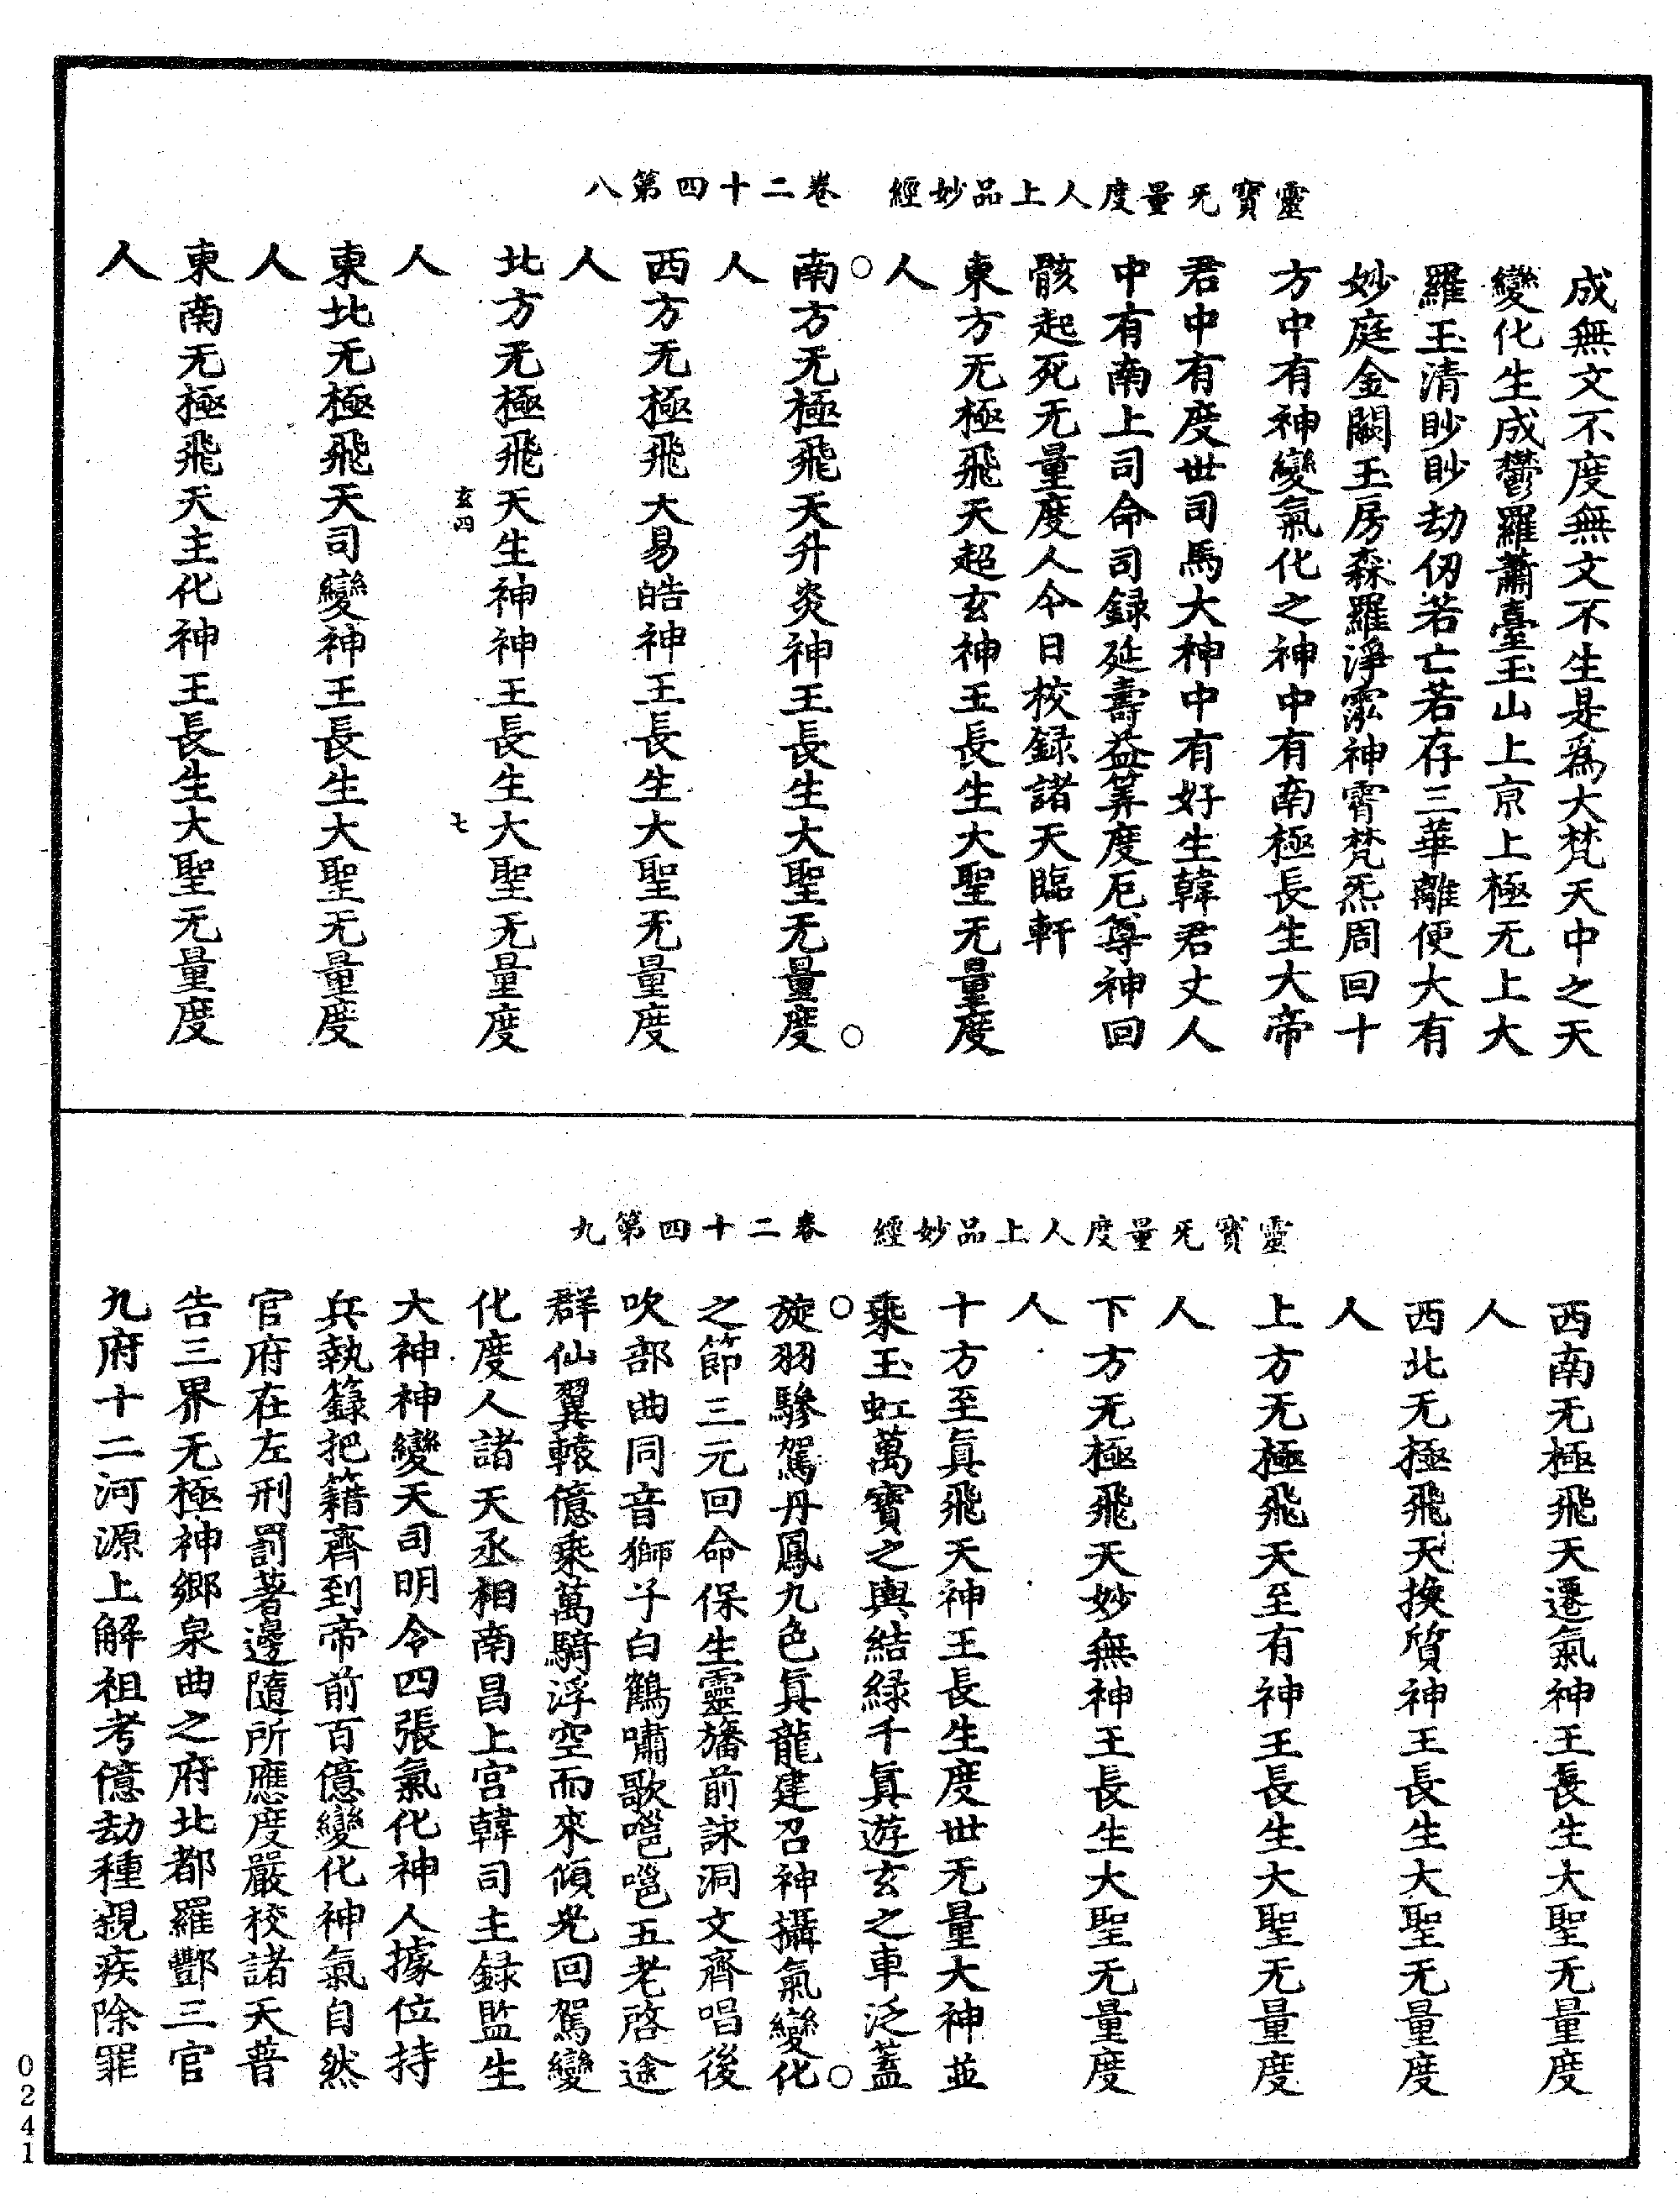 靈寶无量度人上品妙經　卷二十四第八
成無文不度無文不生是爲大梵天中之天
變化生成鬱羅蕭臺玉山上京上極无上大
羅玉清眇眇劫仞若亡若存三華離便大有
妙庭金闕玉房森羅淨泓神霄梵炁周回十
方中有神變氣化之神中有南極長生大帝
君中有度世司馬大神中有好生韓君丈人
中有南上司命司録延壽益筭度厄尊神回
骸起死无量度人今日校録諸天臨軒
東方无極飛天超玄神王長生大聖无量度
人
南方无極飛天升炎神王長生大聖无量度
人
西方无極飛天易皓神王長生大聖无量度
人
北方无極飛天生神神王長生大聖无量度
人
玄四　七
東北无極飛天司變神王長生大聖无量度
人
東南无極飛天主化神王長生大聖无量度
人
靈寶无量度人上品妙經　卷二十四第九
西南无極飛天遷氣神王長生大聖无量度
人
西北无極飛天換質神王長生大聖无量度
人
上方无極飛天至有神王長生大聖无量度
人
下方无極飛天妙無神王長生大聖无量度
人
十方至眞飛天神王長生度世无量大神並
乘玉虹萬寶之輿結緑千眞遊玄之車泛蓋
旋羽驂駕丹鳳九色眞龍建召神攝氣變化
之節三元回命保生靈旛前詠洞文齊唱後
吹部曲同音獅子白鶴嘯歌嗈嗈五老啓途
群仙翼轅億乘萬騎浮空而來傾光回駕變
化度人諸天丞相南昌上宫韓司主録監生
大神神變天司明令四張氣化神人據位持
兵執籙把籍齊到帝前百億變化神氣自然
官府在左刑罰著邊隨所應度嚴校諸天普
告三界无極神鄉泉曲之府北都羅酆三官
九府十二河源上解祖考億劫種親疾除罪
0241